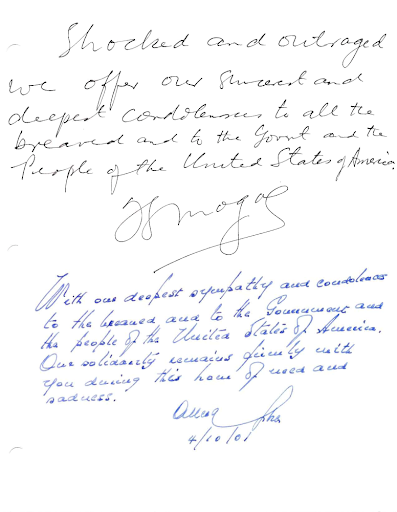 Shocked and outraged
we offer our sincerest and
deepest condolences to all the
breaved and to the Govnt and the
People of the United States of America
With our deepest sympathy and condolences
to the breaved and to the Government and
the people of the United States of America.
Our solidarity remains firmly with
you during this hour of need and
sadness.
4/10/01